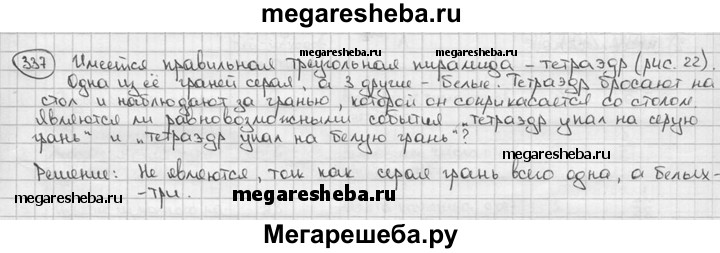 megaresheba.ru
337 Имеется правильная треугольная пирамида - тетраэдр (рис. 22).
megaresheba.ru
megaresheba.ru
Одна из её граней серая, а 3 другие - белые. Тетраэдр бросают на
стол и наблюдают за гранью, которой он соприкасается со столом.
Являются ли равновозможными события „тетраэдр упал на серую
грань" и „тетраэдр упал на белую грань"?
megaresheba.ru
megaresheba.ru
Решение: Не являются, так как серая грань всего одна, а белых -
- три.
megaresheba.ru
megaresheba.ru
Мегарешеба.ру